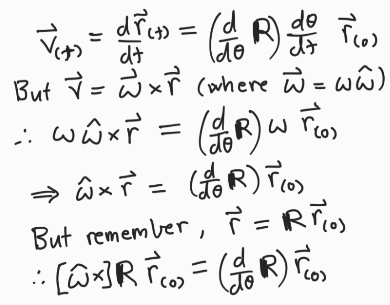 v⃗₍ₜ₎ = dr⃗₍ₜ₎/dt = (d/dθ ℝ) dθ/dt r⃗₍₀₎
But v⃗ = ω⃗ × r⃗ (where ω⃗ = ω ω̂)
∴ ω ω̂ × r⃗ = (d/dθ ℝ) ω r⃗₍₀₎
⇒ ω̂ × r⃗ = (d/dθ ℝ) r⃗₍₀₎
But remember, r⃗ = ℝ r⃗₍₀₎
∴ [ω̂×] ℝ r⃗₍₀₎ = (d/dθ ℝ) r⃗₍₀₎